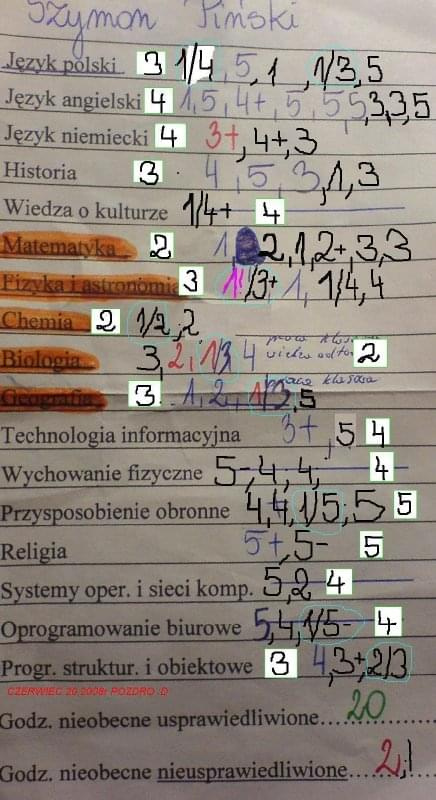 Szymon Piński
Język polski 3 1/4, 5, 1, 1/3, 5
Język angielski 4 1, 5, 4+, 5, 5 5, 3, 3, 5
Język niemiecki 4 3+, 4+, 3
Historia 3 4, 5, 3, 1, 3
Wiedza o kulturze 1/4+ 4
Matematyka 2 1, 2, 1, 2+, 3, 3
Fizyka i astronomia 3 1/3+, 1, 1/4, 4
Chemia 2 1/2, 2
Biologia 3, 2, 1/3 4 praca klasowa 2
Geografia 3 1, 2, 1/3, 5 praca klasowa
Technologia informacyjna 3+, 5 4
Wychowanie fizyczne 5-, 4, 4, 4
Przysposobienie obronne 4, 4, 1/5, 5 5
Religia 5+, 5- 5
Systemy oper. i sieci komp. 5, 2 4
Oprogramowanie biurowe 5, 4, 1/5- 4
Progr. struktur. i obiektowe 3 4, 3+, 2/3
CZERWIEC 20,2008r POZDRO ;D
Godz. nieobecne usprawiedliwione....20..........
Godz. nieobecne nieusprawiedliwione.....2, 1